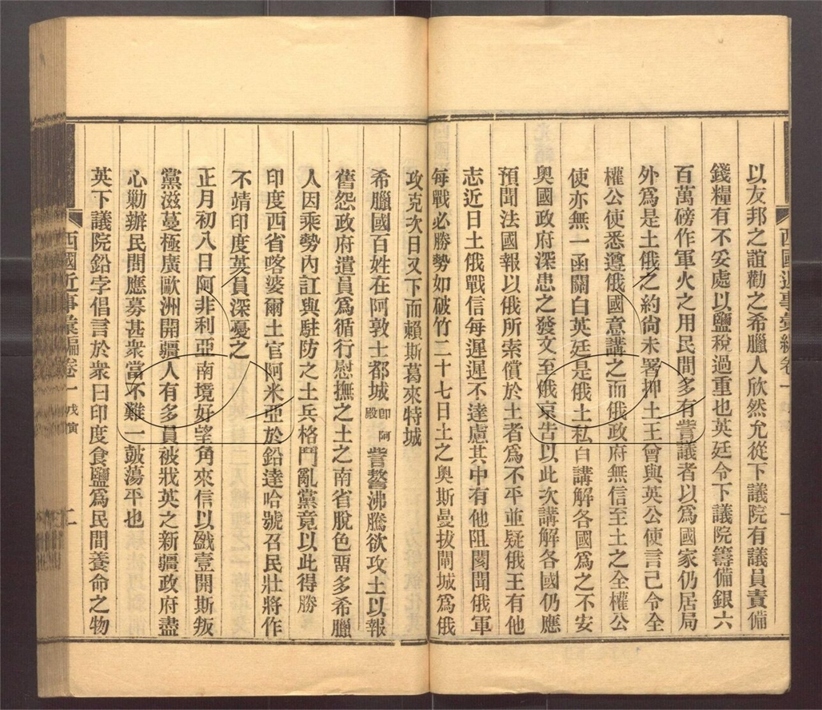 以友邦之誼勸之希臘人欣然允從下議院有議員責備
錢糧有不妥處以鹽稅過重也英廷令下議院籌備銀六
百萬磅作軍火之用民間多有訾議者以為國家仍居局
外為是土俄之約尙未署押土王曾與英公使言己令全
權公使悉遵俄國意講之而俄政府無信至土之全權公
使亦無一函關白英廷是俄土私自講解各國為之不安
奧國政府深患之發文至俄京告以此次講解各國仍應
預聞法國報以俄所索償於土者為不平並疑俄王有他
志近日土俄戰信每遲遲不達慮其中有他阻閡聞俄軍
每戰必勝勢如破竹二十七日土之奧斯曼拔閘城為俄
攻克次日又下而賴斯葛來特城
希臘國百姓在阿敦士都城即阿殿訾謷沸騰欲攻土以報
舊怨政府遣員為循行慰撫之土之南省脫色畱多希臘
人因乘勢內訌與駐防之土兵格鬥亂黨竟以此得勝
印度西省喀婆爾土官阿米亞於鉛達哈號召民壯將作
不靖印度英員深憂之
正月初八日阿非利亞南境好望角來信以戤壹開斯叛
黨滋蔓極廣歐洲開疆人有多員被戕英之新疆政府盡
心勦辦民間應募甚衆當不難一鼓蕩平也
英下議院鉛孛倡言於衆曰印度食鹽為民間養命之物
西國近事彙編卷一 戊寅 二